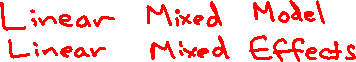 Linear Mixed Model
Linear Mixed Effects